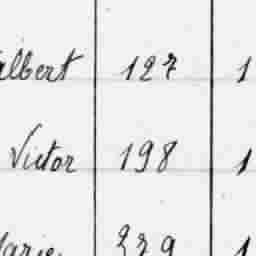 albert 127 1
Victor 198 1
Marie 229 1